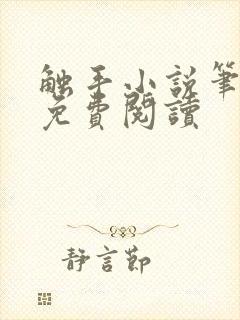 触手小说笔
免費閱讀
静言節